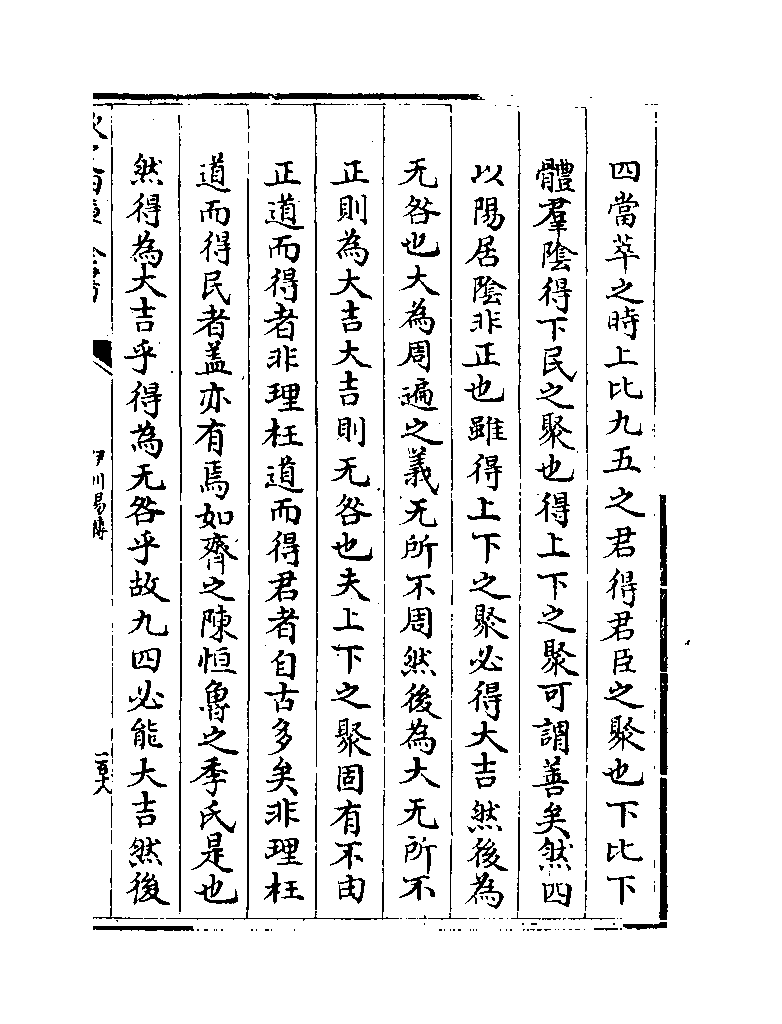 四當萃之時上比九五之君得君臣之聚也下比下
體羣陰得下民之聚也得上下之聚可謂善矣然四
以陽居陰非正也雖得上下之聚必得大吉然後為
无咎也大為周遍之義无所不周然後為大无所不
正則為大吉大吉則无咎也夫上下之聚固有不由
正道而得者非理枉道而得君者自古多矣非理枉
道而得民者蓋亦有焉如齊之陳恒魯之季氏是也
然得為大吉乎得為无咎乎故九四必能大吉然後
伊川易傳